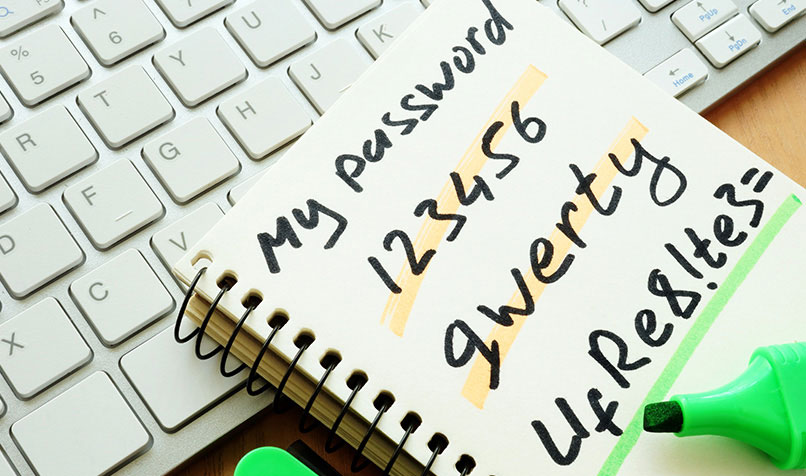 My password
123456
qwerty
UfRe8!te3=
^
6
%
5
Y
U
T
R
G
H
J
K
F
D
V
C
X
PgUp
PgDn
Home
End